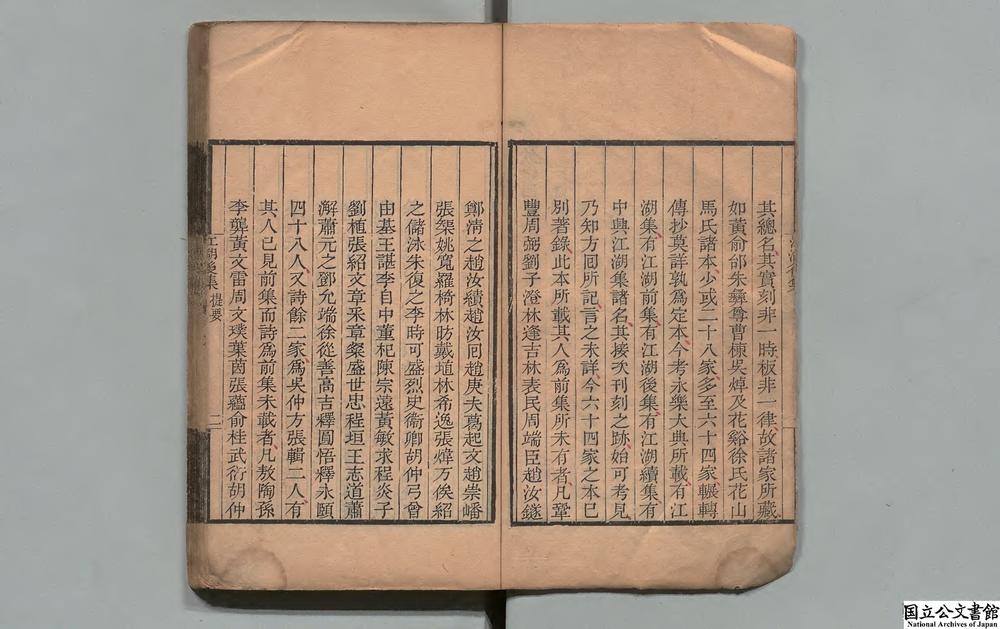 其總名其實刻非一時板非一律故諸家所藏
如黃俞邰朱彝尊曹棟吳焯及花谿徐氏花山
馬氏諸本少或二十八家多至六十四家輾轉
傳抄莫詳孰爲定本今考永樂大典所載有江
湖集有江湖前集有江湖後集有江湖續集有
中興江湖集諸名其接次刊刻之跡始可考見
乃知方囘所記言之未詳今六十四家之本已
別著錄此本所載其人爲前集所未有者凡鞏
豐周弼劉子澄林逢吉林表民周端臣趙汝鐩
鄭淸之趙汝績趙汝囘趙庚夫葛起文趙崇嶓
張榘姚寬羅椅林昉戴埴林希逸張煒万俟紹
之儲泳朱復之李時可盛烈史衞卿胡仲弓曾
由基王諶李自中董杞陳宗遠黃敏求程炎子
劉植張紹文章采章粲盛世忠程垣王志道蕭
澥蕭元之鄧允端徐從善高吉釋圓悟釋永頤
四十八人又詩餘二家爲吳仲方張輯二人有
其人已見前集而詩爲前集未載者凡敖陶孫
李龏黃文雷周文璞葉茵張蘊俞桂武衍胡仲
江湖後集 提要
二
国立公文書館
National Archives of Japan